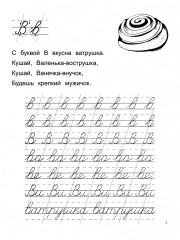 В в
С буквой В вкусна ватрушка.
Кушай, Валенька-вострушка,
Кушай, Ванечка-внучок,
Будешь крепкий мужичок.
в в в в в в в
в в в в в в в
В В В В В В В
ва ва ва ва ва ва
ве ве ве ве ве ве
Ви Ви Ви Ви Ви
ватрушка ватрушка